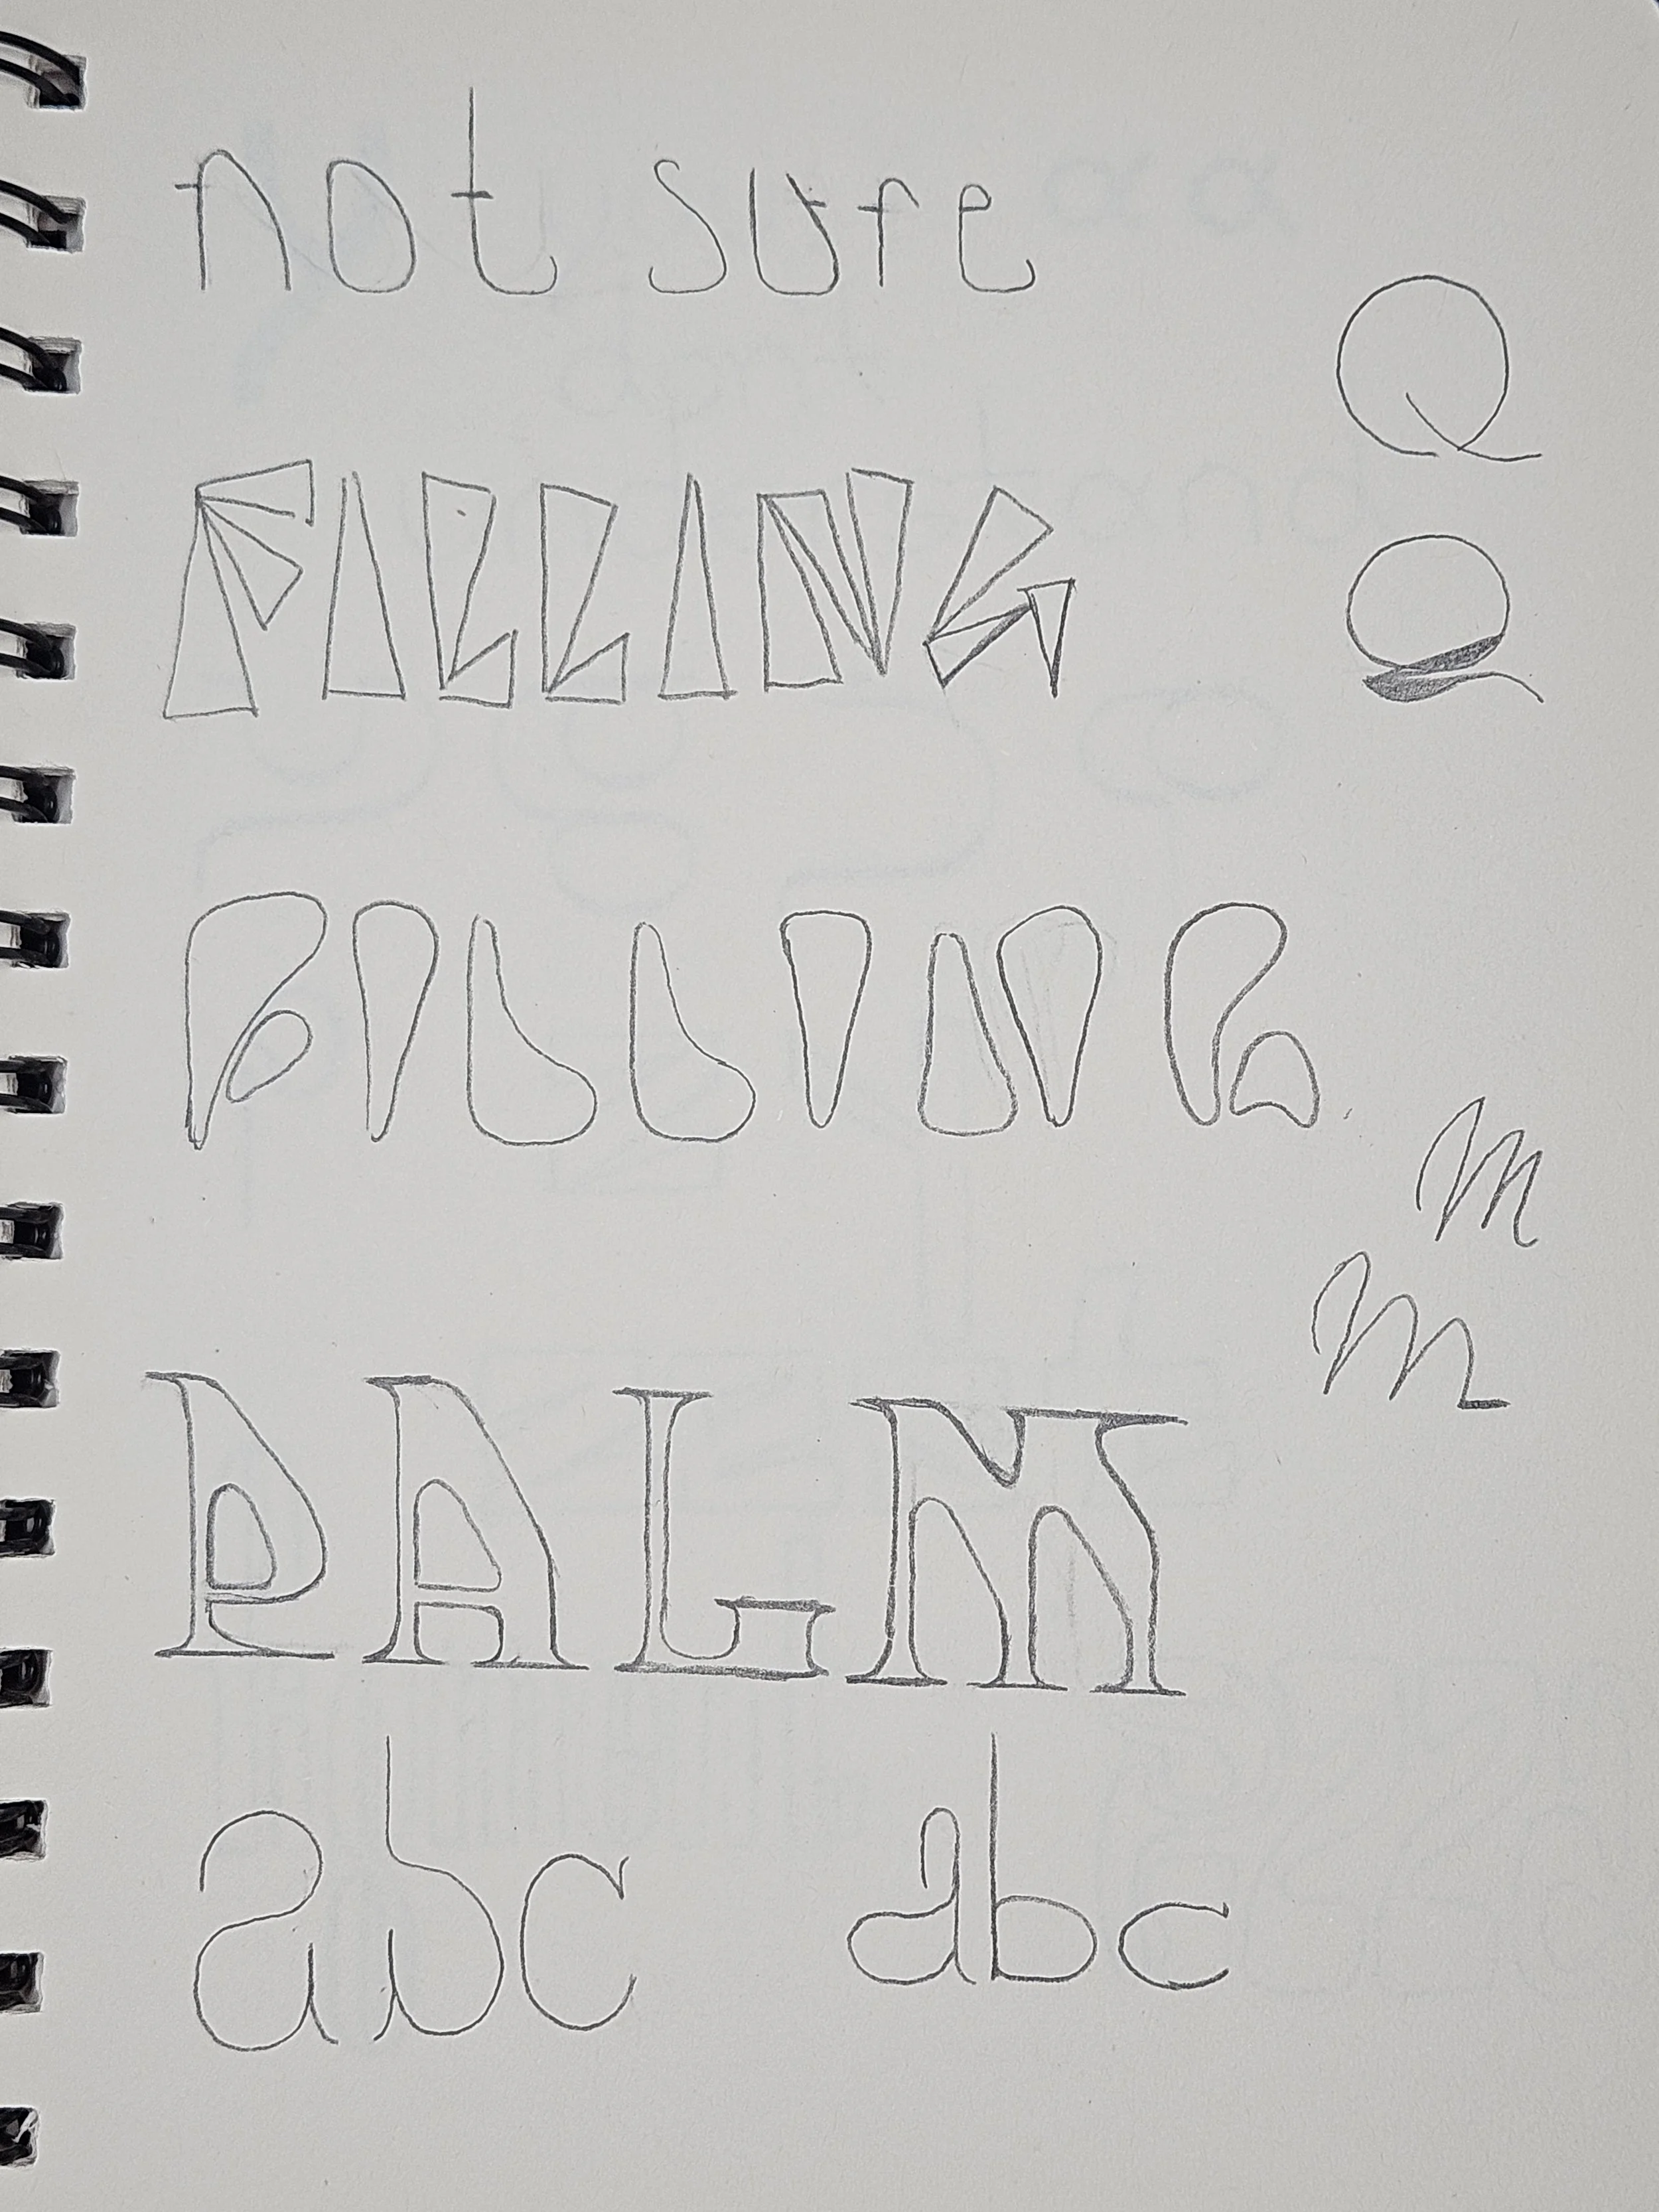 not sure
Q
FILLING
Q
FILLING
m
m
PALM
abc abc